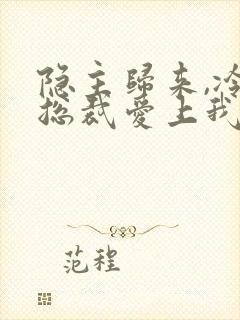 隐主歸来,冷
总裁爱上我
范程